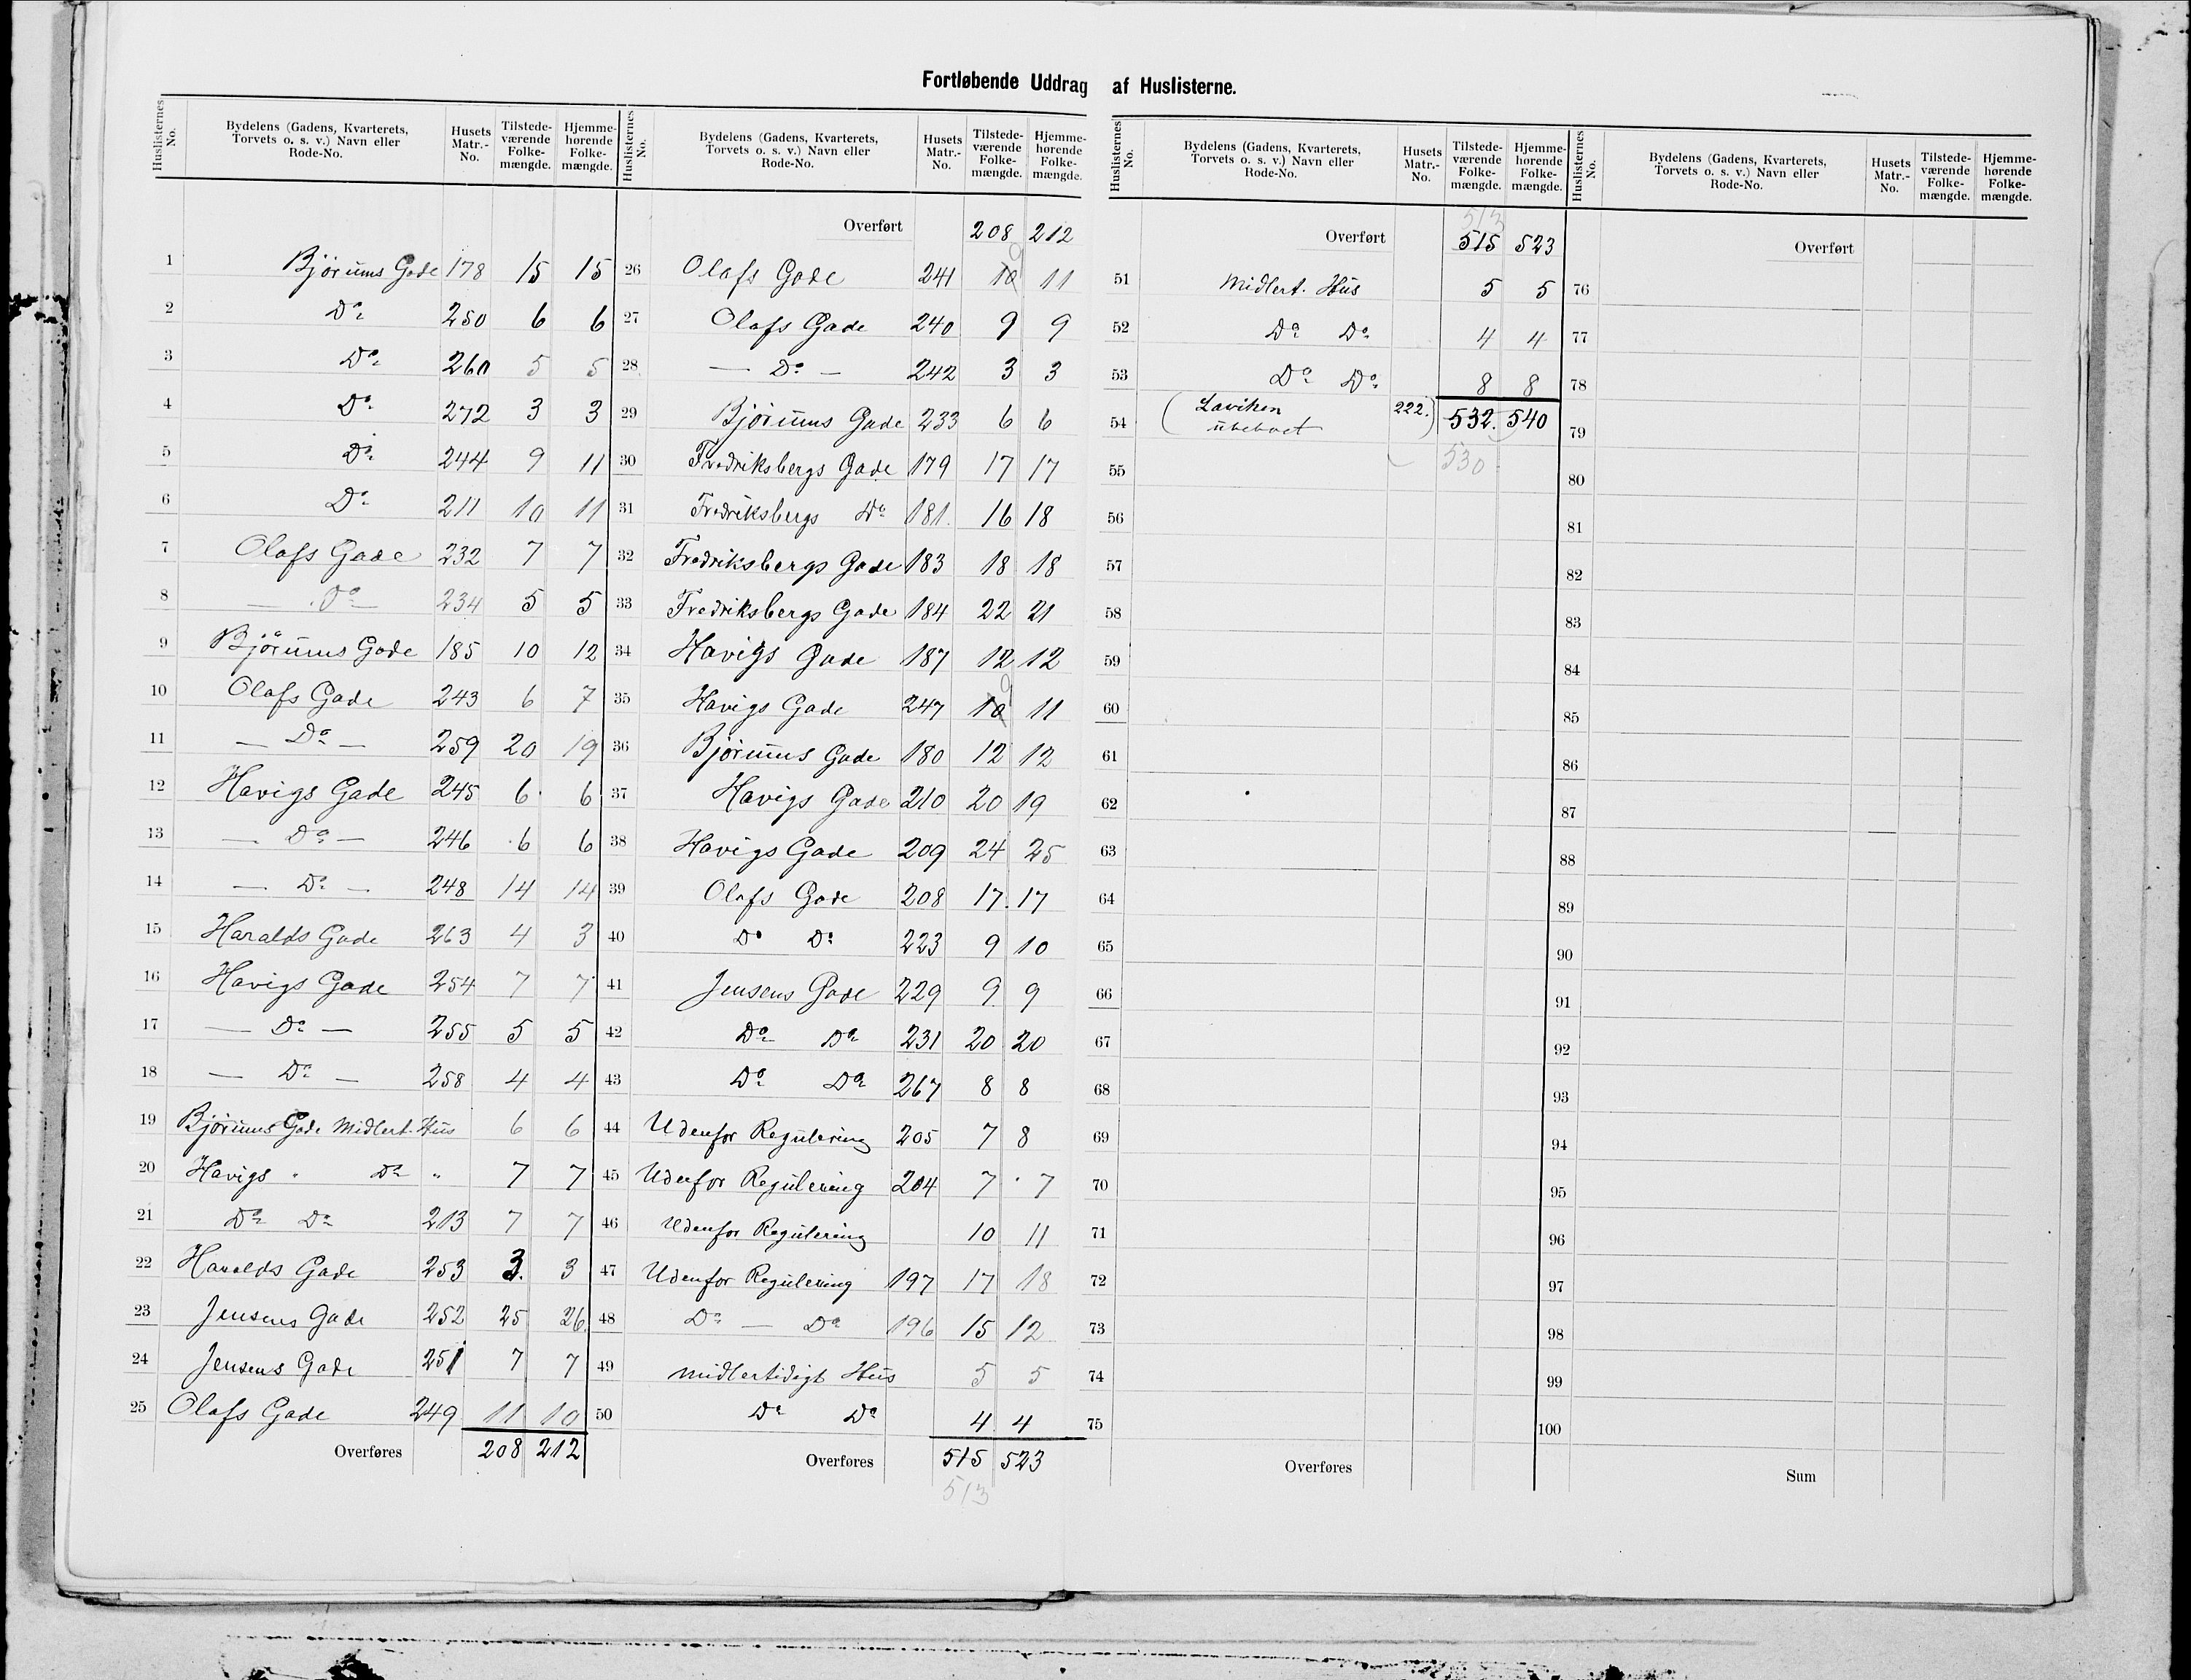 Fortløbende Uddrag af Huslisterne.
Huslisternes No. | Bydelens (Gadens, Kvarterets, Torvets o. s. v.) Navn eller Rode-No. | Husets Matr.-No. | Tilstedeværende Folkemængde. | Hjemmehørende Folkemængde.
1 Bjørums Gade 178 15 15
2 Do 250 6 6
3 Do 260 5 5
4 Do 272 3 3
5 Do 244 9 11
6 Do 211 10 11
7 Olafs Gade 232 7 7
8 — Do — 234 5 5
9 Bjørums Gade 185 10 12
10 Olafs Gade 243 6 7
11 — Do — 259 20 19
12 Havigs Gade 245 6 6
13 — Do — 246 6 6
14 — Do — 248 14 14
15 Haralds Gade 263 4 3
16 Havigs Gade 254 7 7
17 — Do — 255 5 5
18 — Do — 258 4 4
19 Bjørums Gade Midlert. Hus 6 6
20 Havigs " Do " 7 7
21 Do Do 213 7 7
22 Haralds Gade 253 3. 3
23 Jensens Gade 252 25 26
24 Jensens Gade 251 7 7
25 Olafs Gade 249 11 10
Overføres 208 212
Huslisternes No. | Bydelens (Gadens, Kvarterets, Torvets o. s. v.) Navn eller Rode-No. | Husets Matr.-No. | Tilstedeværende Folkemængde. | Hjemmehørende Folkemængde.
Overført 208 212
26 Olafs Gade 241 10 9 11
27 Olafs Gade 240 9 9
28 — Do — 242 3 3
29 Bjørums Gade 233 6 6
30 Fredriksbergs Gade 179 17 17
31 Fredriksbergs Do 181. 16 18
32 Fredriksbergs Gade 183 18 18
33 Fredriksbergs Gade 184 22 21
34 Havigs Gade 187 12 12
35 Havigs Gade 247 10 9 11
36 Bjørums Gade 180 12 12
37 Havigs Gade 210 20 19
38 Havigs Gade 209 24 25
39 Olafs Gade 208 17. 17
40 Do Do 223 9 10
41 Jensens Gade 229 9 9
42 Do Do 231 20 20
43 Do Do 267 8 8
44 Udenfor Regulering 205 7 8
45 Udenfor Regulering 204 7 7
46 Udenfor Regulering 10 11
47 Udenfor Regulering 197 17 18
48 Do — Do 196 15 12
49 midlertidigt Hus 5 5
50 Do Do 4 4
Overføres 515 523
513
Huslisternes No. | Bydelens (Gadens, Kvarterets, Torvets o. s. v.) Navn eller Rode-No. | Husets Matr.-No. | Tilstedeværende Folkemængde. | Hjemmehørende Folkemængde.
513
Overført 515 523
51 Midlert. Hus 5 5
52 Do Do 4 4
53 Do Do 8 8
54 (Laviken ubeboet 222.) 532. 540
55 530
56
57
58
59
60
61
62
63
64
65
66
67
68
69
70
71
72
73
74
75
Overføres
Huslisternes No. | Bydelens (Gadens, Kvarterets, Torvets o. s. v.) Navn eller Rode-No. | Husets Matr.-No. | Tilstedeværende Folkemængde. | Hjemmehørende Folkemængde.
Overført
76
77
78
79
80
81
82
83
84
85
86
87
88
89
90
91
92
93
94
95
96
97
98
99
100
Sum